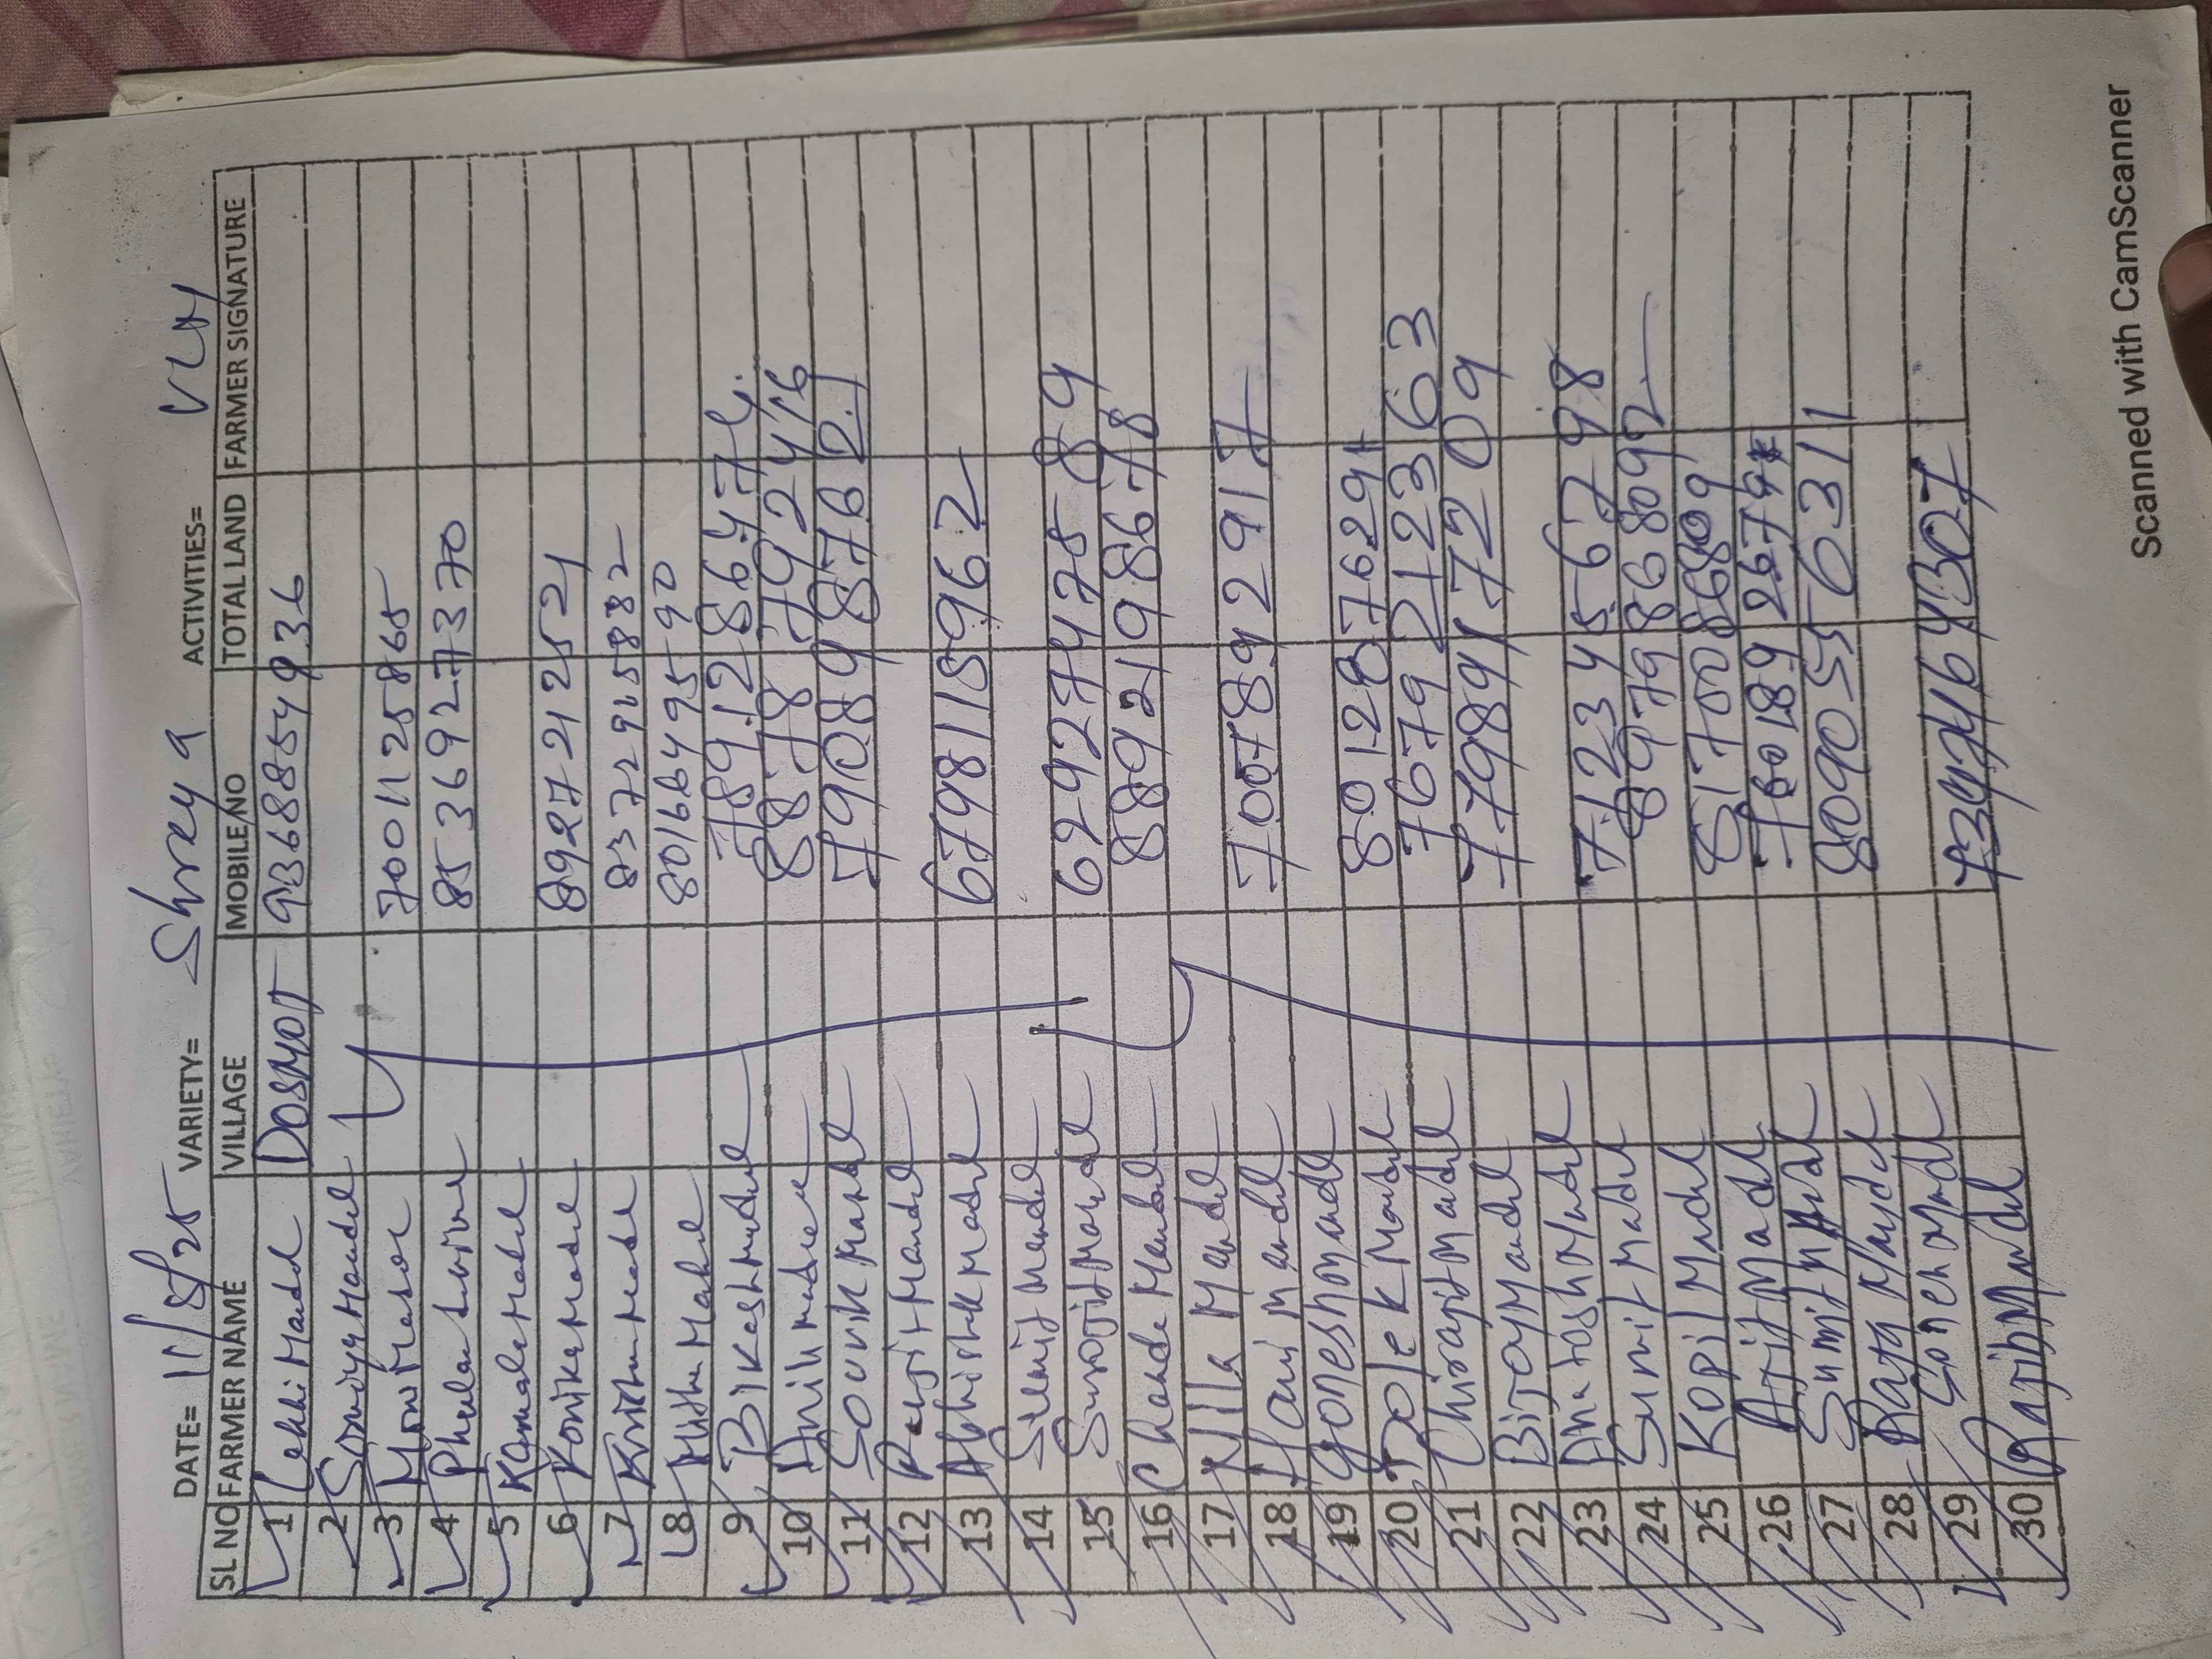 DATE= 11/8/25 VARIETY= Shreya ACTIVITIES= VLM
SL NO FARMER NAME VILLAGE MOBILE NO TOTAL LAND FARMER SIGNATURE
1 Lakhi Mandal DOSMOT 9368854936
2 Soumya Mandal
3 Moni 7001125865
4 Phulan 8536927370
5 Kamala Madal
6 Konika Madal 8927212521
7 Krishna Madal 8372925882
8 Mithu Madal 8016649590
9 Bikash Mandal 789128647
10 Anil 8878792416
11 Souvik Mandal 7908987621
12 Ranjit Mandal
13 Abhishek Madal 6798118962
14 Mandal
15 Surojit Mandal 6292747889
16 Chanda Mandal 8892198678
17 Nilla Mandal
18 Hari Mandal 7007892917
19 Gonesh Mandal
20 Dolek Mandal 8012876291
21 Chiranjit Mandal 7679212363
22 Bijoy Mandal 7798917209
23 Mandal
24 Sumit Mandal 7123456798
25 Kopil Mandal 8979868092
26 Arjit Mandal 8170086809
27 Sumit Mandal
28 Raja Mandal 8090556311
29
30 Rajib Mandal 7347464307
Scanned with CamScanner